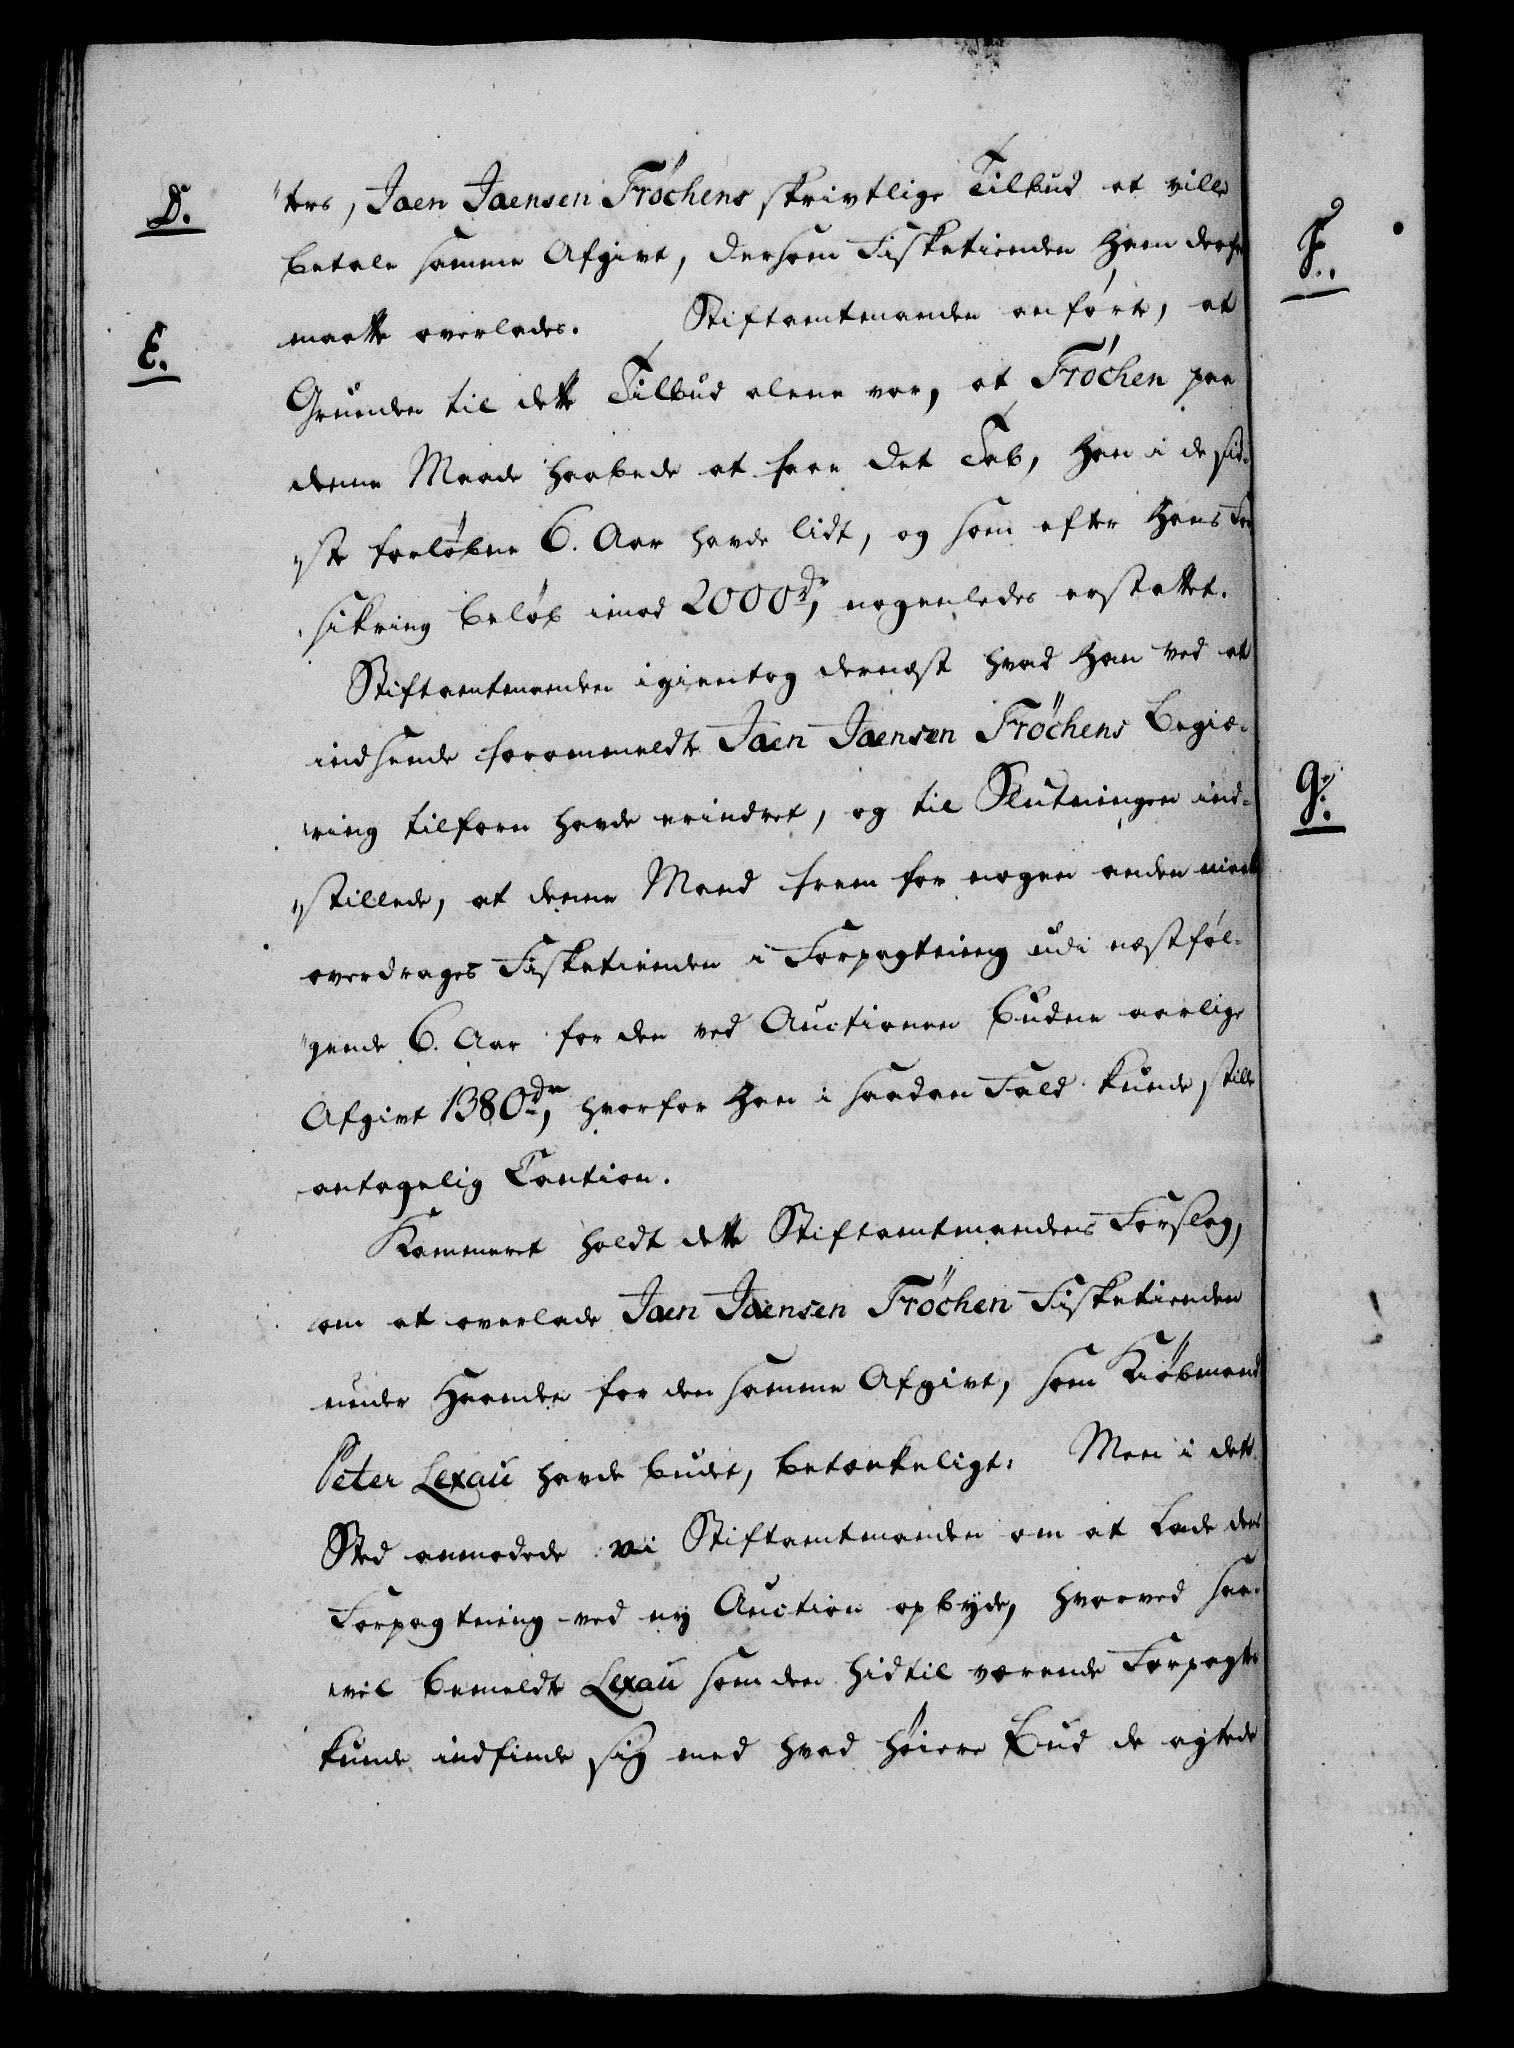 D.
"ters, Jaen Jaensen Fröchens skrivtlige Tilbud at ville
betale samme Afgivt, dersom Fisketienden ham derfor
maatte overlades. Stiftamtmanden anførte, at
E.
Grunden til dette Tilbud alene var, at Fröchen paa
denne Maade haabede at faae det Tab, han i de sid-
"ste forløbne 6. Aar havde lidt, og som efter hans For-
"sikring beløb imod 2000 rdr, nogenledes erstattet.
Stiftamtmanden igientog dernæst hvad han ved at
indsende forommeldte Jaen Jaensen Fröchens Begiæ-
"ring tilforn havde erindret, og til Slutningen ind-
"stillede, at denne Mand frem for nogen anden maatte
overdrages Fisketienden i Forpagtning udi næstføl-
"gende 6. Aar for den ved Auctionen budne aarlige
Afgivt 1380 rdr, hvorfor han i saadan Fald kunde stille
antagelig Caution.
Kammeret holdt dette Stiftamtmandens Forslag,
om at overlade Jaen Jaensen Fröchen Fisketienden
under Haanden for den samme Afgivt, som Kiöbmand
Peter Lexau havde budet, betænkeligt: Men i dets
Sted anmodede vi Stiftamtmanden om at lade den
Forpagtning ved ny Auction opbyde, hvorved saa-
"vel bemeldte Lexau som den hidtil værende Forpagter
kunde indfinde sig med hvad høiere Bud de agtede
F.
G.